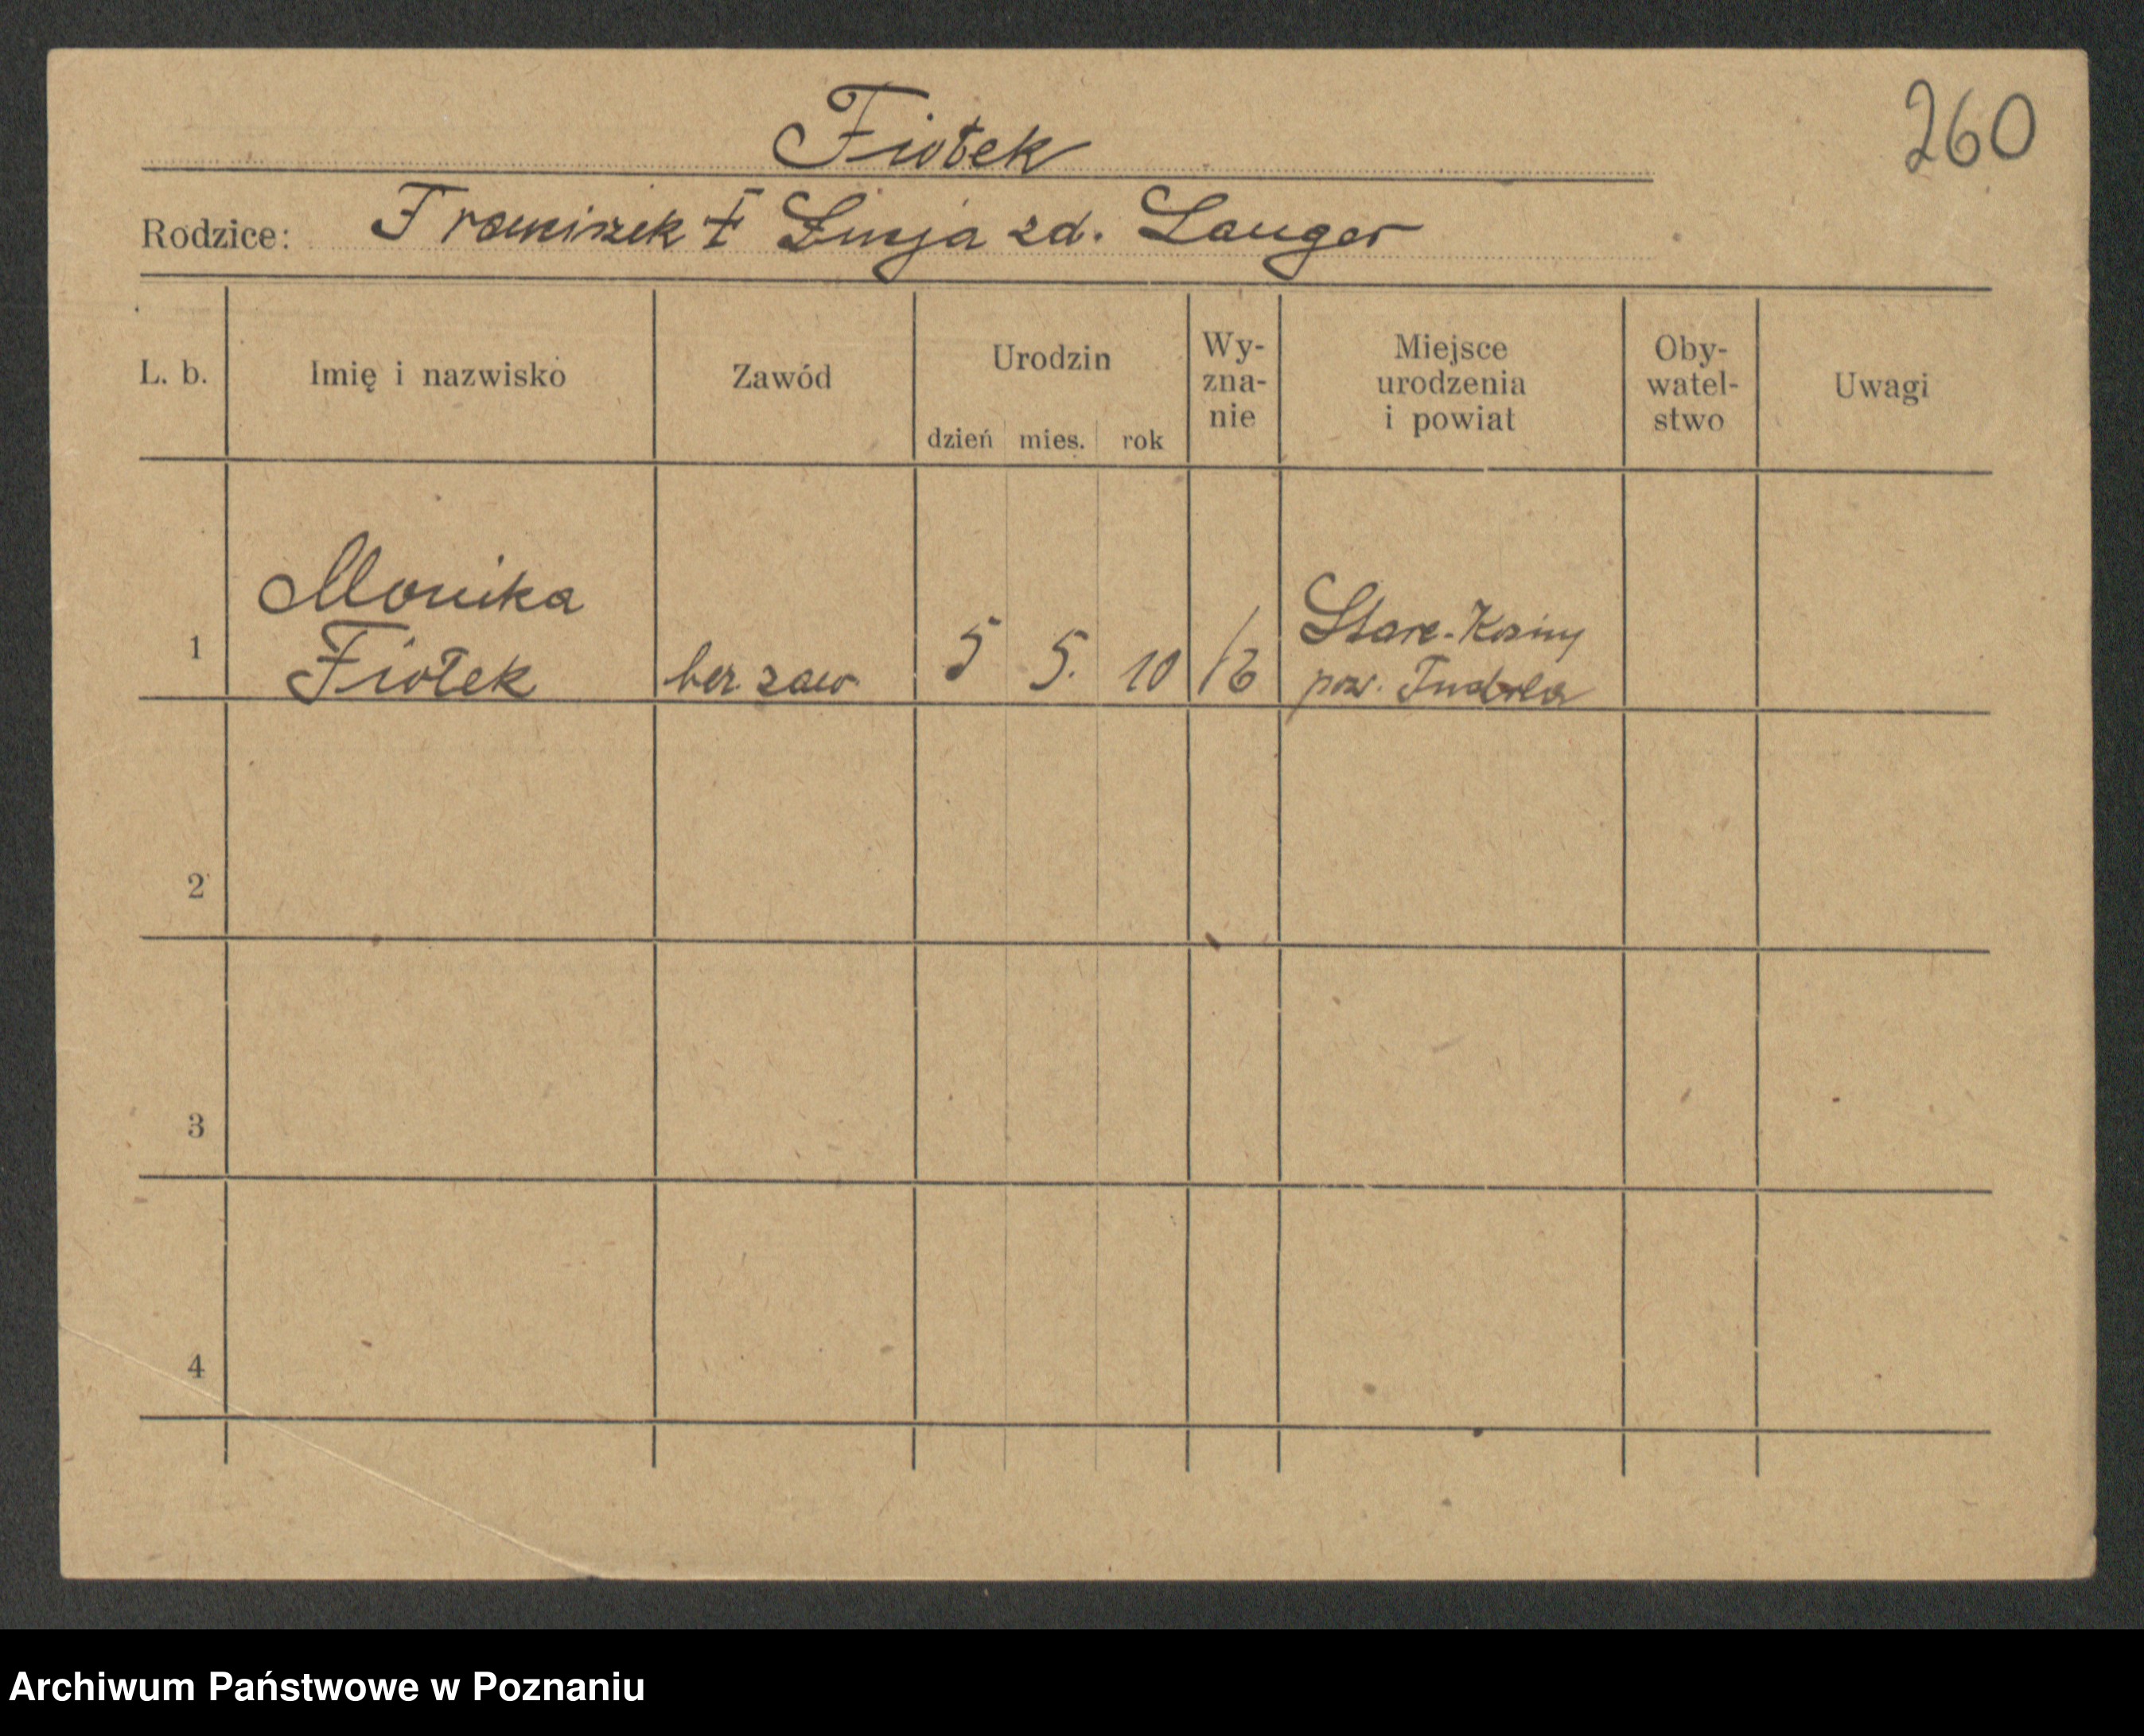 260
Fiołek
Rodzice: Franciszek † zd. Langer
L. b. Imię i nazwisko Zawód Urodzin Wy-zna-nie Miejsce urodzenia i powiat Oby-watel-stwo Uwagi
dzień mies. rok
1 Monika Fiołek bez zaw 5 5. 10 Stare-Kosiny pow.
2
3
4
Archiwum Państwowe w Poznaniu